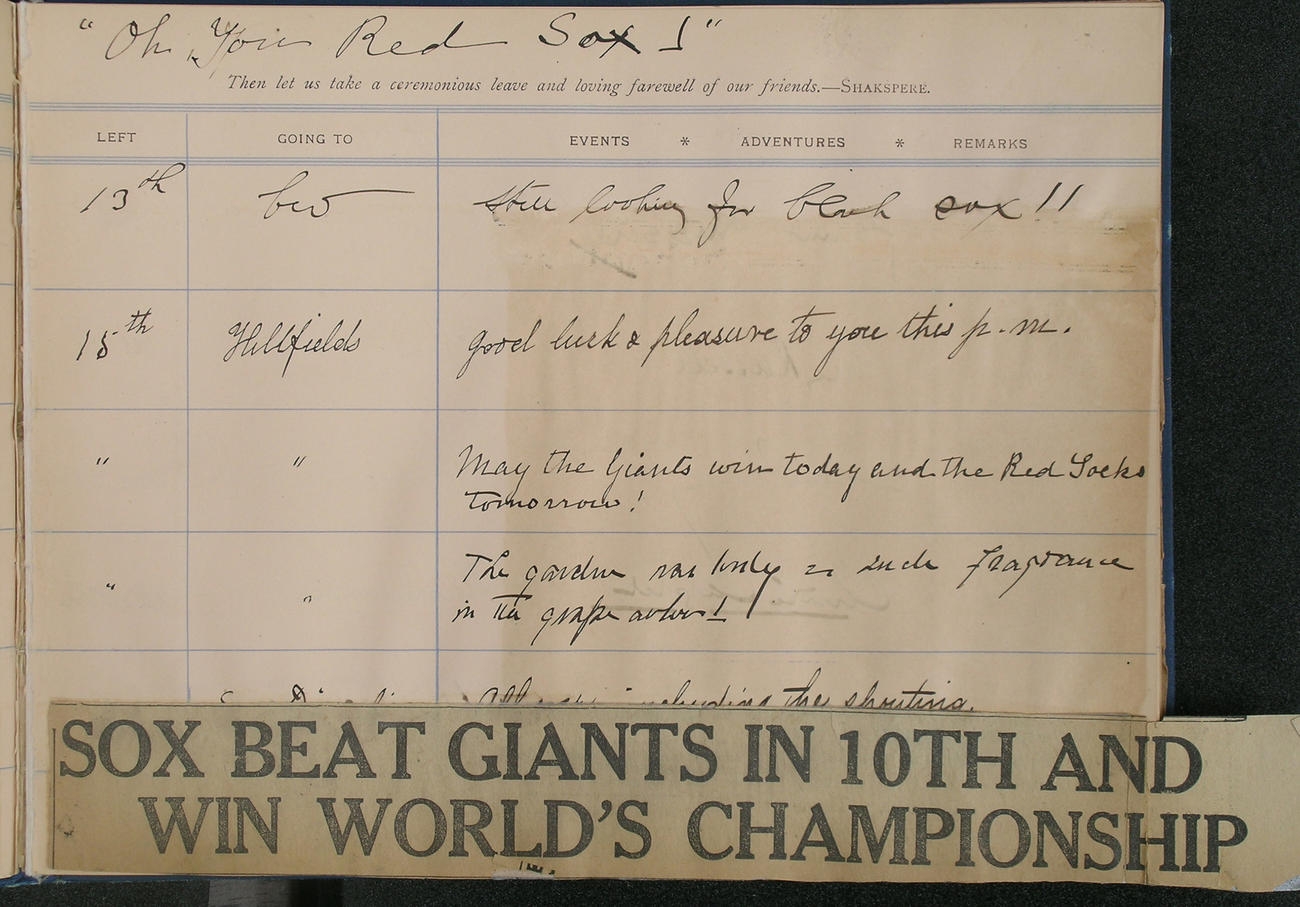 "Oh, You Red Sox!"
Then let us take a ceremonious leave and loving farewell of our friends.—SHAKSPERE.
LEFT GOING TO EVENTS * ADVENTURES * REMARKS
13th Still looking for black sox!!
15th Hillfields Good luck & pleasure to you this p.m.
" " May the Giants win today and the Red Socks
tomorrow!
" " The garden was lovely fragrance
in the grape arbor!
including the shouting.
SOX BEAT GIANTS IN 10TH AND
WIN WORLD'S CHAMPIONSHIP